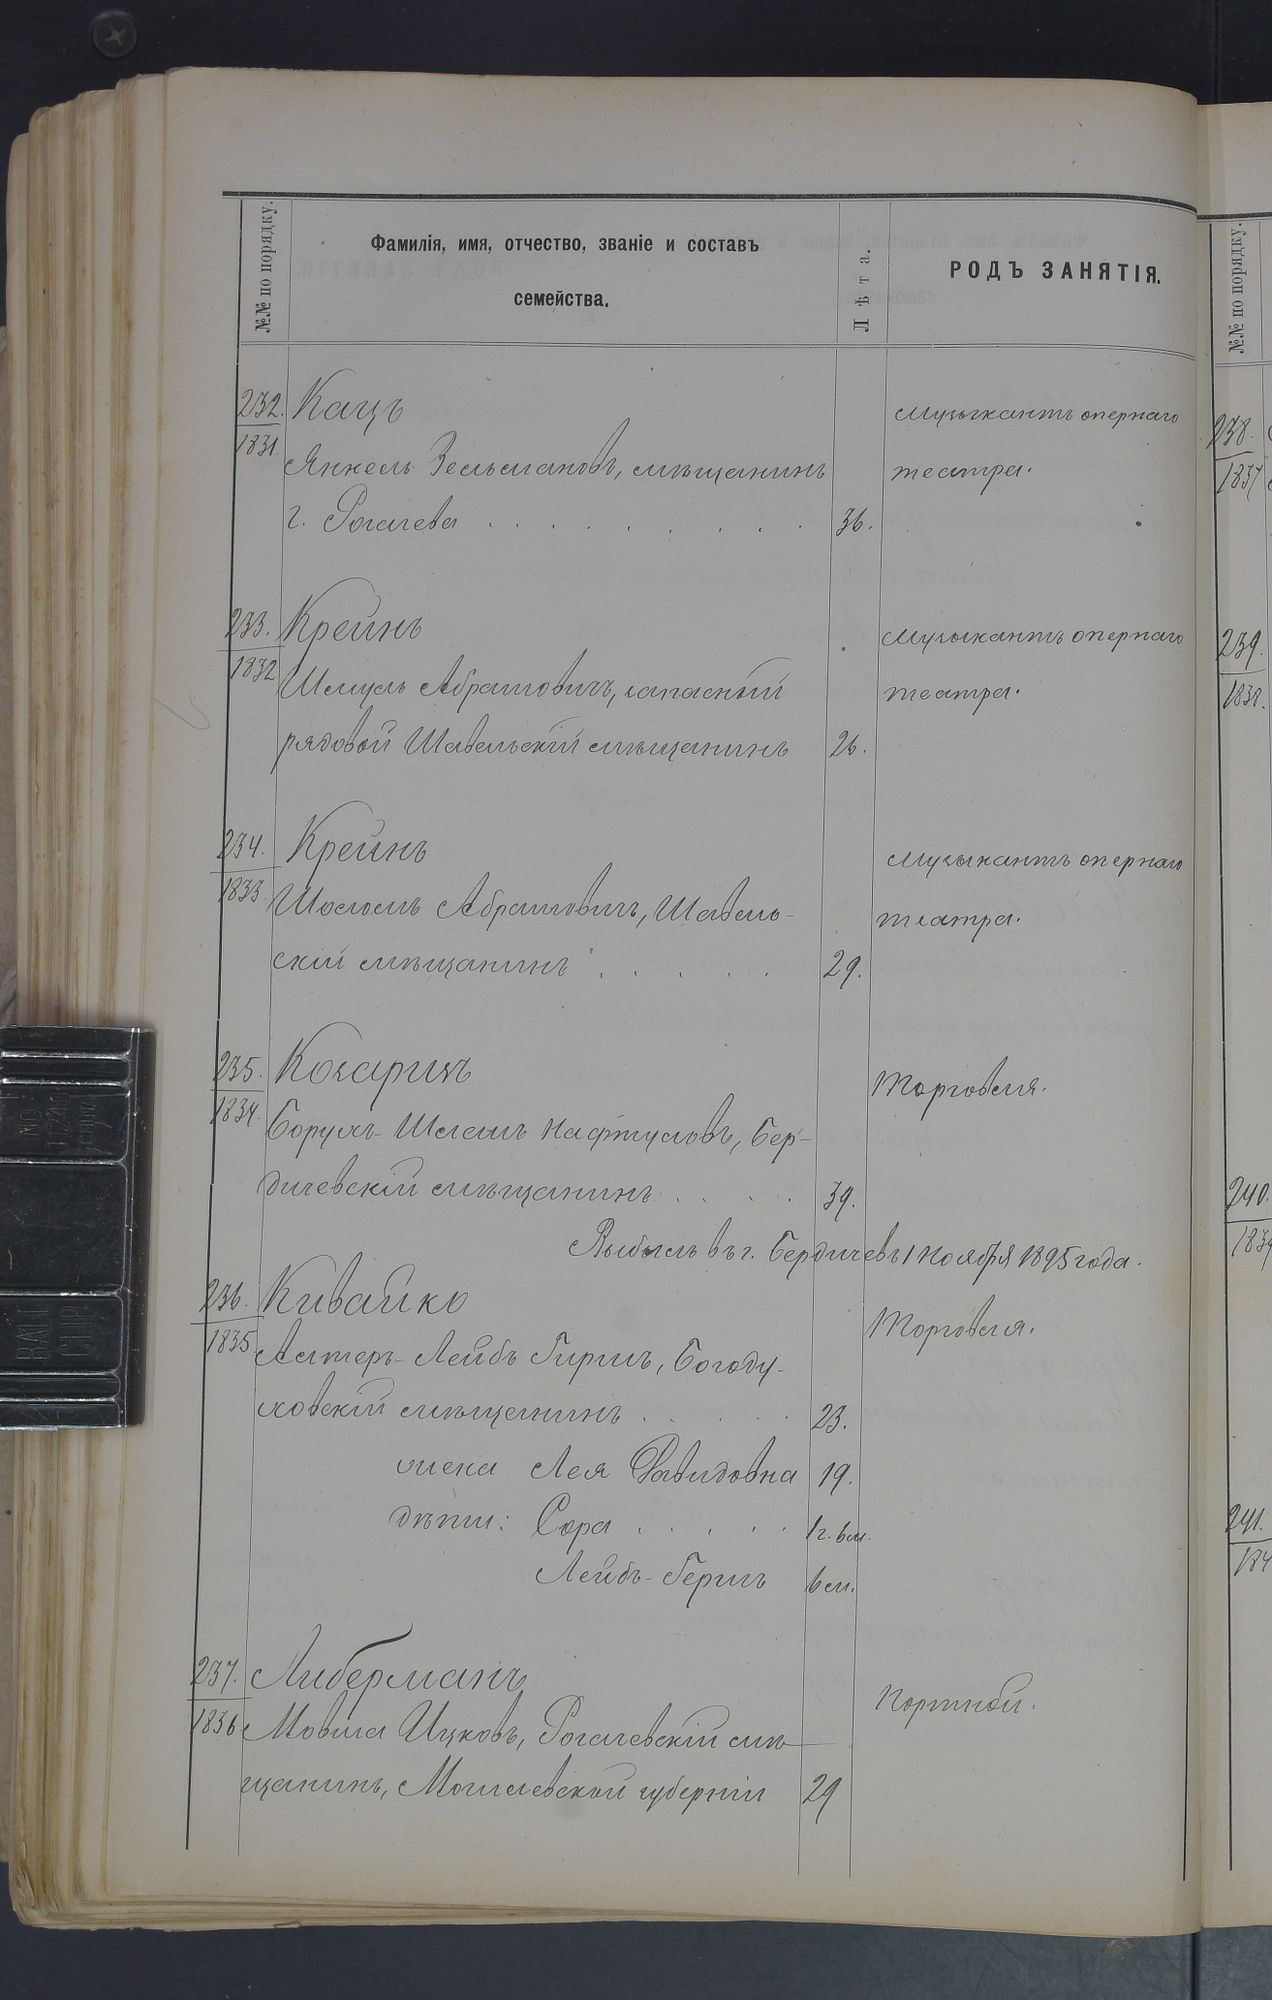 №№ по порядку.
Фамилія, имя, отчество, званіе и составъ
семейства.
Лѣта.
РОДЪ ЗАНЯТІЯ.
232.
1831.
Кацъ
Музыкантъ опернаго
Янкель Зельмановъ, мѣщанинъ
театра.
г. Рогачева . . . . . . . . 36.
233.
1832
Крейнъ
Музыкантъ опернаго
Шмуль Абрамовичъ, запасный
театра.
рядовой Шавельскій мѣщанинъ 26.
234.
1833.
Крейнъ
Музыкантъ опернаго
Шоломъ Абрамовичъ, Шавель-
театра.
скій мѣщанинъ . . . . . 29.
235.
1834.
Торговля.
Борухъ- Нафтуловъ, Бер-
дичевскій мѣщанинъ . . . . 39.
Выбылъ въ г. Бердичевъ 1 Ноября 1895 года.
236.
1835.
Кивайко
Торговля.
Алтеръ-Лейбъ Гиршъ, Богоду-
ховскій мѣщанинъ . . . . 23.
жена Лея Давидовна 19.
дѣти: Сора . . . . . 1 г. 6 м.
Лейбъ-Гершъ 6 м.
237.
1836
Либерманъ
Портной.
Мовша Ицковъ, Рогачевскій мѣ-
щанинъ, Могилевской губерніи 29
№№ по порядку.
238.
1837
239.
1838.
240.
241.